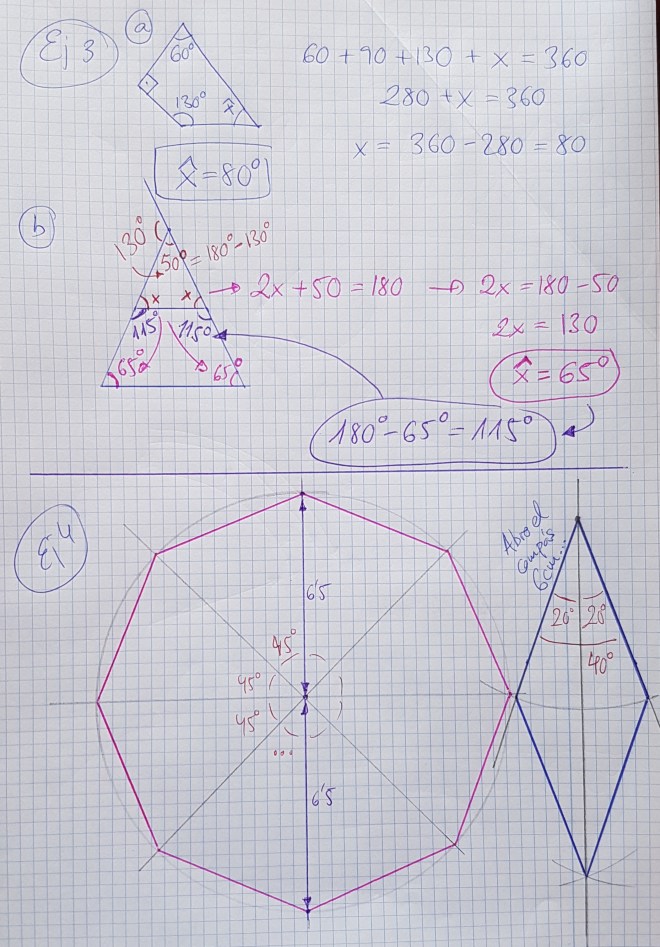 Ej 3
a
60°
130°
x̂
60 + 90 + 130 + x = 360
280 + x = 360
x = 360 - 280 = 80
x̂ = 80°
b
130°
50° = 180° - 130°
x x → 2x + 50 = 180 → 2x = 180 - 50
2x = 130
x̂ = 65°
115° 115°
65° 65°
180° - 65° = 115°
Ej 4
6'5
45°
45°
45°
...
6'5
Abro el
compás
6cm...
20° 20°
40°